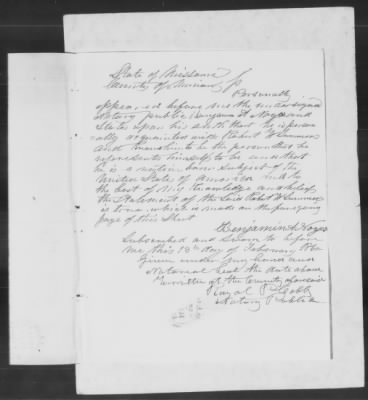 State of Missouri
County of
Personally
appeared before me the undersigned
Notary public Benjamin A Noys and
States upon his oath that he is person
ally acquainted with Robert W
and knows him to be the person that he
represents himself to be and that
he is a native born Subject of the
United States of America and to
the best of my Knowledge and belief
the Statement of the Said Robert W
is true which is made on the foregoing
page of this Sheet
Benjamin A Noys
Subscribed and Sworn to before
me this 13th day of February
Given under my hand and
Notarial Seal the date above
written at the County aforesaid
Notary Public